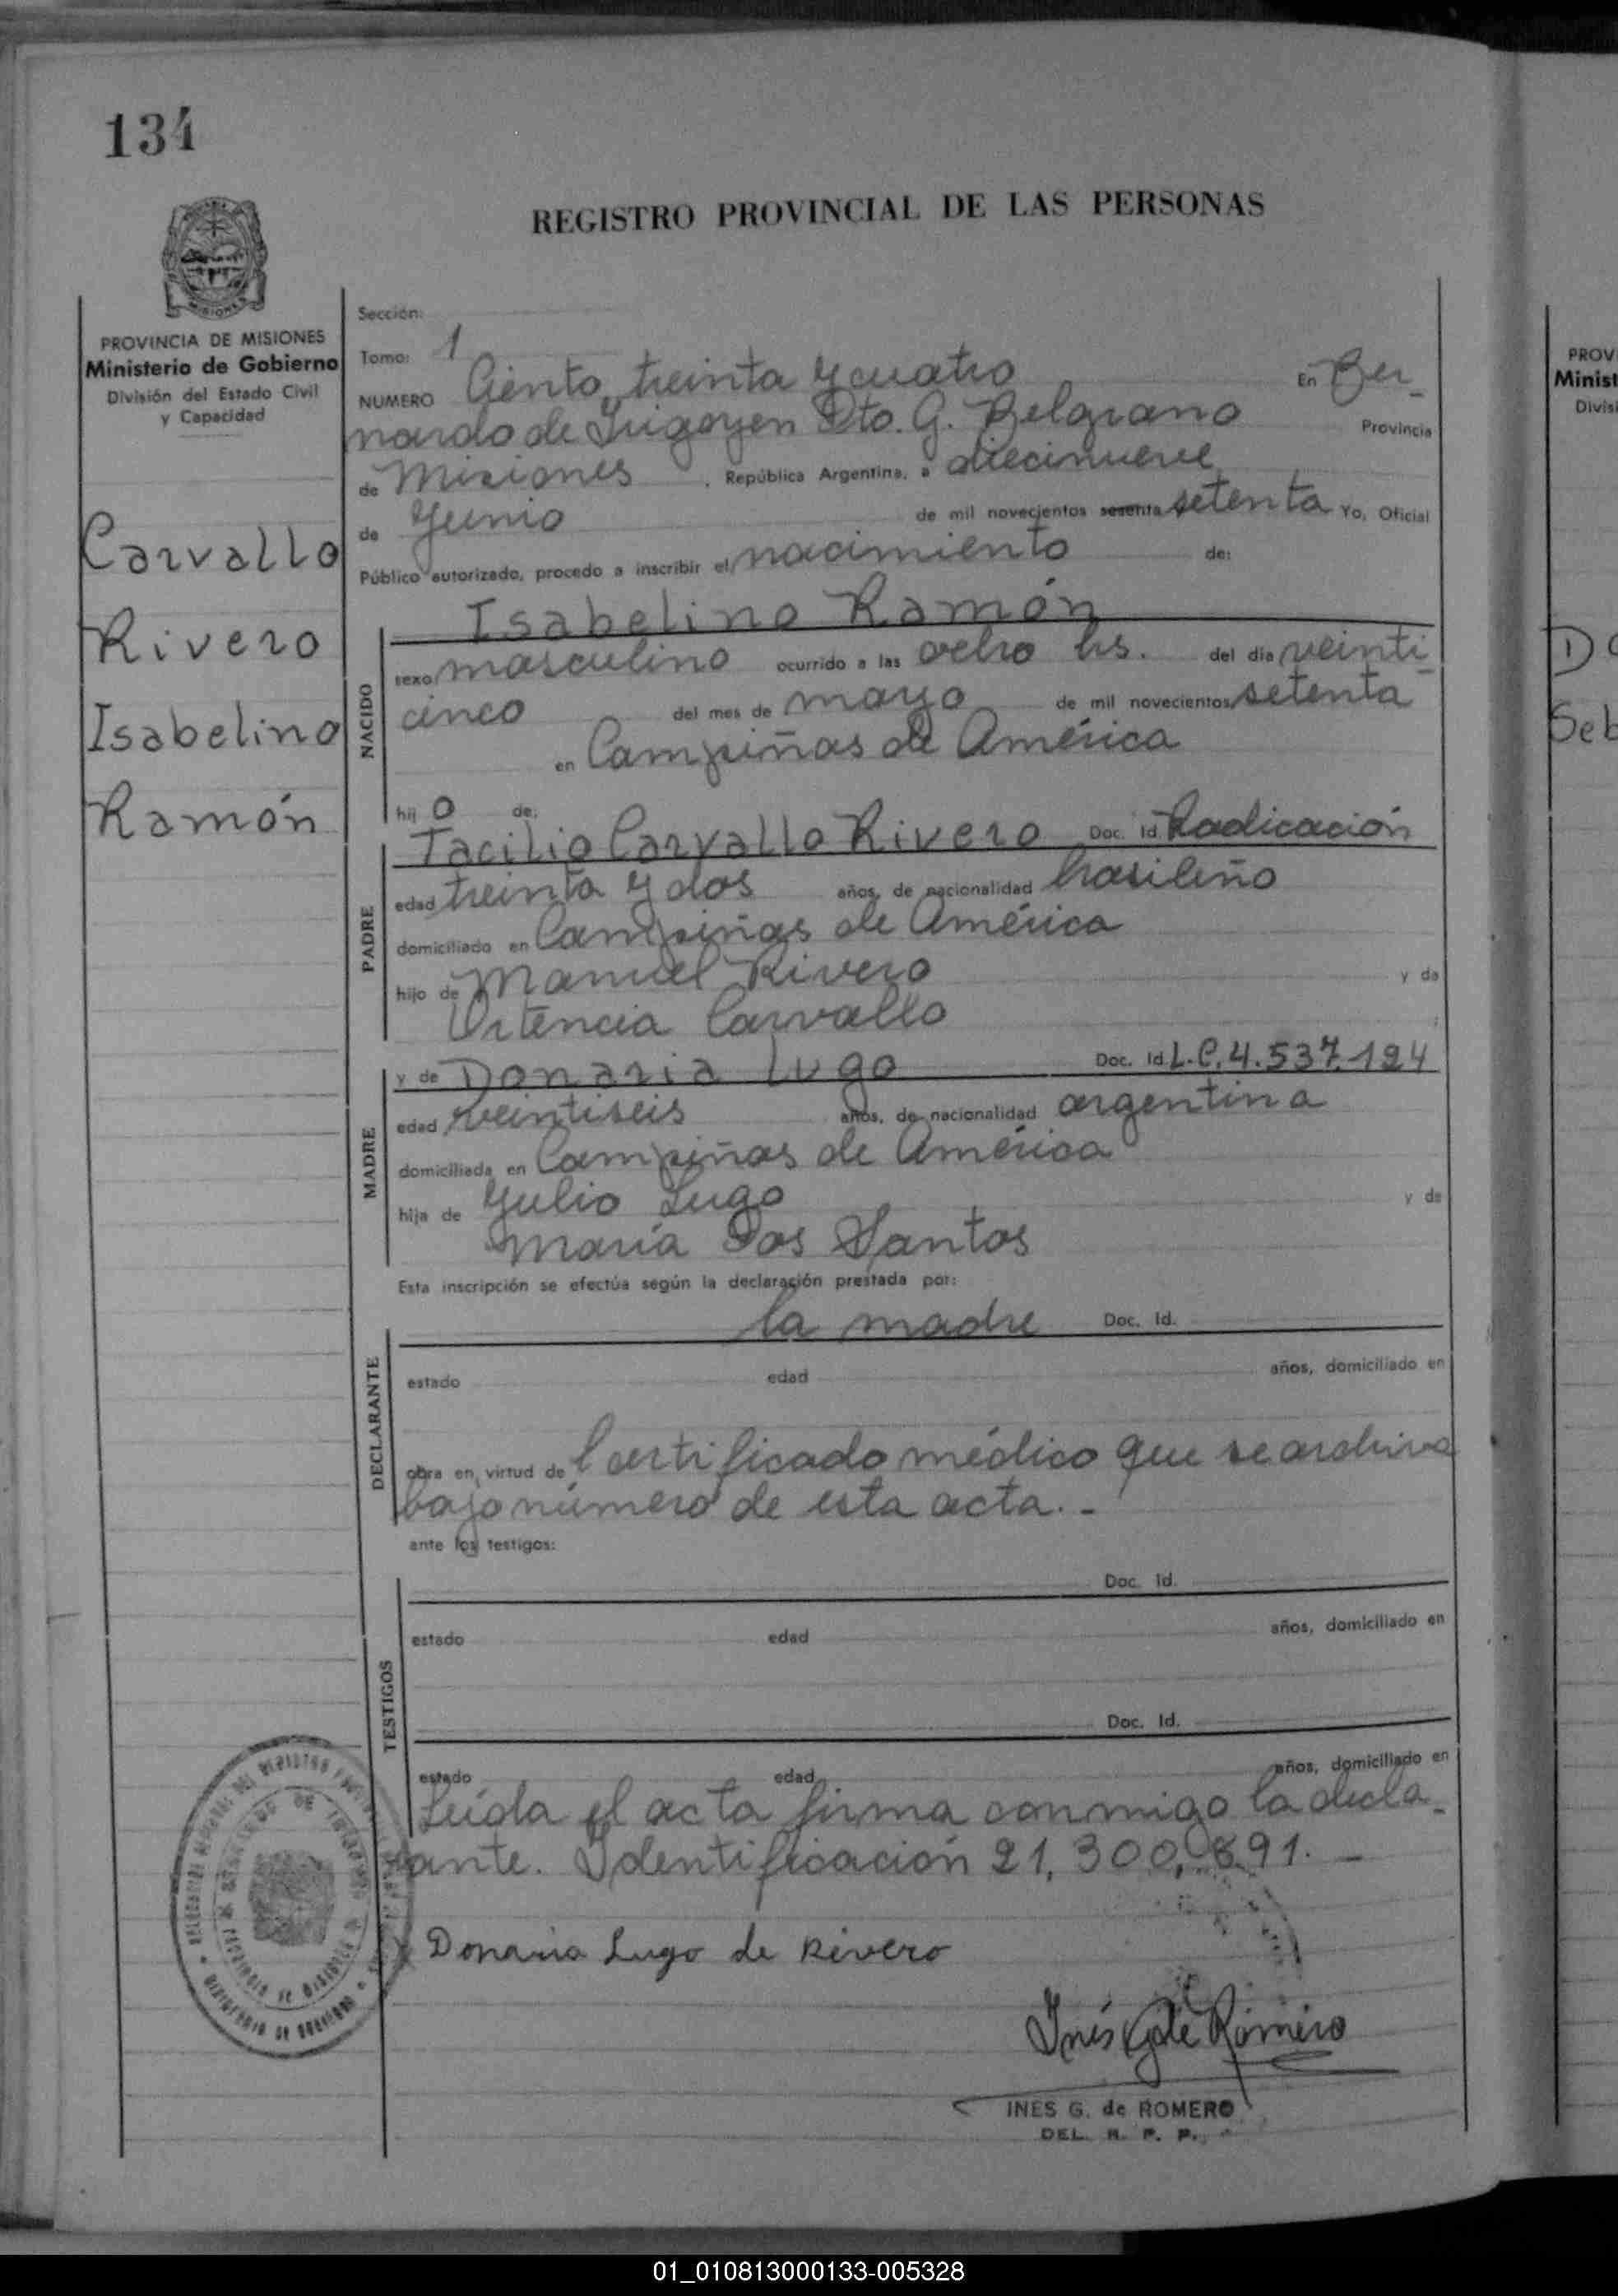 134
REGISTRO PROVINCIAL DE LAS PERSONAS
MISIONES
PROVINCIA DE MISIONES
Ministerio de Gobierno
División del Estado Civil
y Capacidad
Carvallo
Rivero
Isabelino
Ramón
Sección:
Tomo: 1
NUMERO Ciento treinta y cuatro En Ber-
nardo de Irigoyen Dto. G. Belgrano Provincia
de Misiones, República Argentina, a diecinueve
de Junio de mil novecientos sesenta setenta Yo, Oficial
Público autorizado, procedo a inscribir el nacimiento de:
Isabelino Ramón
NACIDO
sexo masculino ocurrido a las ocho hs. del día veinti-
cinco del mes de mayo de mil novecientos setenta
en Campiñas de América
hij o de:
PADRE
Tacilio Carvallo Rivero Doc. Id. Radicación
edad treinta y dos años, de nacionalidad brasileño
domiciliado en Campiñas de América
hijo de Manuel Rivero y de
Ortencia Carvallo
MADRE
y de Donaria Lugo Doc. Id. L.C. 4.537.194
edad veintiseis años, de nacionalidad argentina
domiciliada en Campiñas de América
hija de Julio Lugo y de
María Dos Santos
Esta inscripción se efectúa según la declaración prestada por:
DECLARANTE
la madre Doc. Id.
estado edad años, domiciliado en
obra en virtud de Certificado médico que se archiva
bajo número de esta acta. -
ante los testigos:
TESTIGOS
Doc. Id.
estado edad años, domiciliado en
Doc. Id.
estado edad años, domiciliado en
Leída el acta firma conmigo la decla-
rante. Identificación 21.300.891. -
Donaria Lugo de Rivero
Inés G de Romero
INES G. de ROMERO
DEL. R. P. P.
PROV
Minist
Divis
Seb
01_010813000133-005328